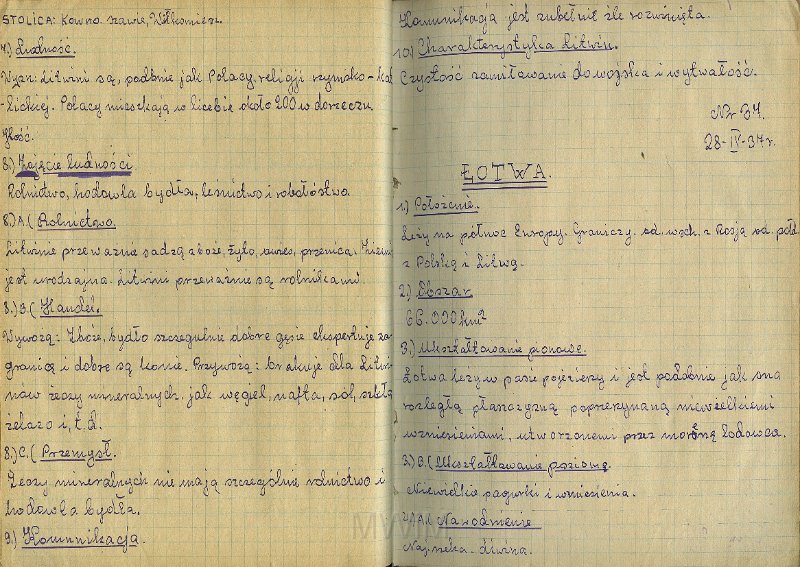 STOLICA: Kowno. szawle, Wiłkomierz.
7.) Ludność.
Wyzn: Litwini są, podbnie jak Polacy, religji rzymsko-kat
lickiej. Polacy mieszkają w liczbie około 200 w dorzeczu
Ilość.
8.) Zajęcie ludności
Rolnictwo, hodowla bydła, leśnictwo i robołóstwo
8.) A.( Rolnictwo.
Litwinie przeważnie sadzą zboże, żyto, owies, pszenica.
jest urodzajna. Litwini przeważnie są rolnikami.
8.) B.( Handel.
Wywożą: Zboże, bydło szczegulnie dobre gęsie eksportuje za
granicą i dobre są konie. Przywożą: brakuje dla Litwi
nów żeczy mineralnych. jak węgiel, nafta, sól, szkło,
żelazo i, t.d.
8.) C.( Przemysł.
Żeczy mineralnych nie mają szczególnie rolnictwo i
hodowla bydła.
9.) Komunikacja.
Komunikacja jest zubełnie źle rozwinięta.
10) Charakterystyka Litwin.
Czystość zamiławanie do wojska i wytwałość.
Nr 34.
28-IV-37r.
ŁOTWA.
1.) Położenie.
Leży na północ Europy. Graniczy. od wsch. z Rosją od. połd
z Polską i Litwą.
2.) Obszar
66.000 km²
3.) Ukształtowanie pionowe.
Łotwa leży w pasie pojezierzy i jest podobnie jak ona
rozległą płaszczyzną poprzezynaną niewielkiemi
wzniesieniami, utworzonemi przez morenę lodowca.
3.) B.( Ukształtowanie poziome.
Niewielkie pagurki i wzniesienia.
4.) A.( Nawodnienie
Naj. rzeka. dźwina.
MWM